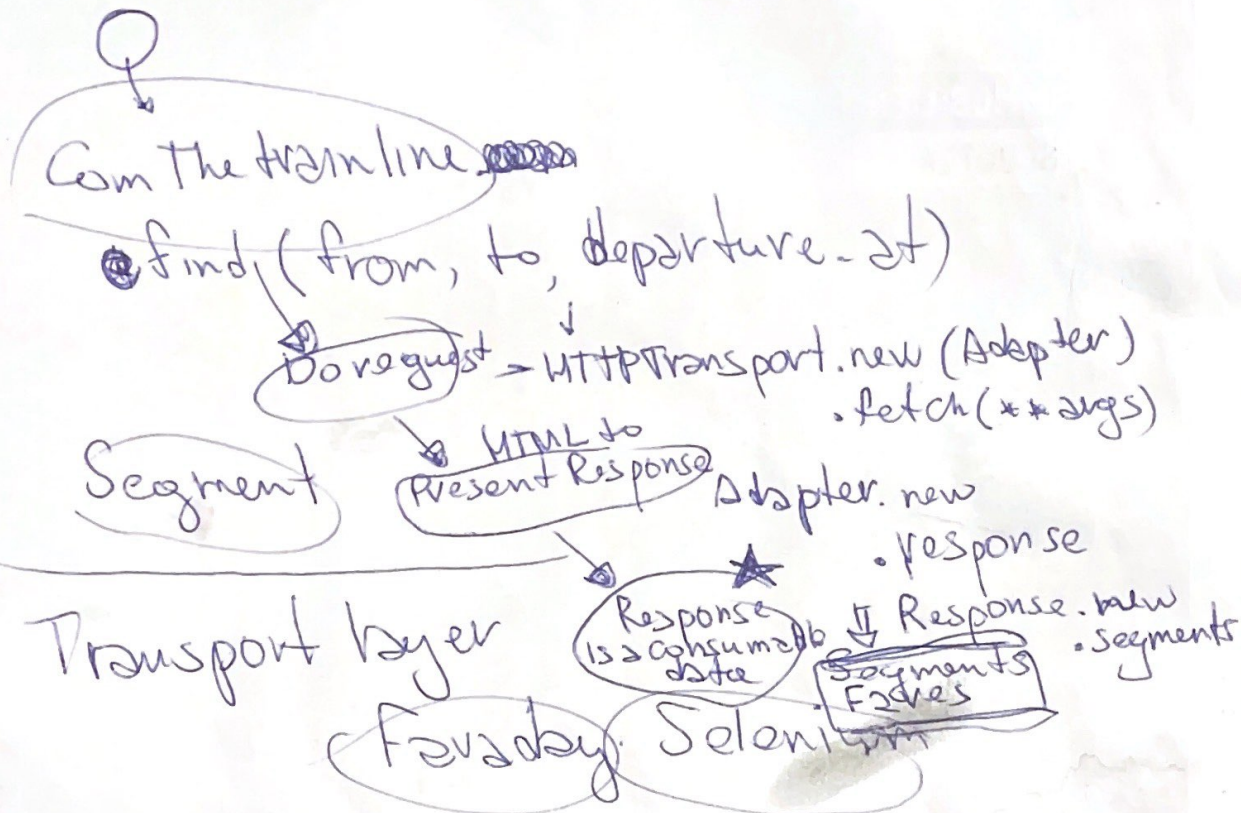 Com The trainline
find (from, to, departure_at)
Do request - HTTPTransport.new (Adapter)
.fetch(**args)
Segment
HTML to
Present Response
Adapter.new
.response
Response
is a consumable
data
Response.new
.segments
Segments
Fares
Transport layer
Faraday
Selenium